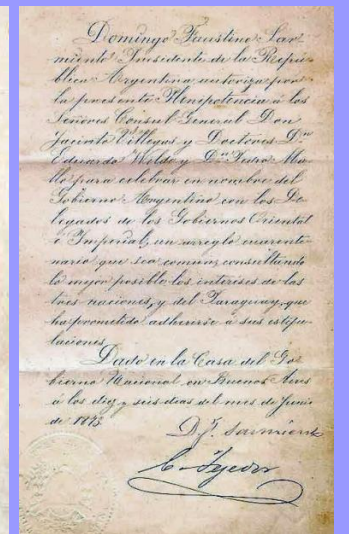 Domingo Faustino Sar-
miento Presidente de la Repú-
blica Argentina autoriza por
la presente Plenipotencia á los
Señores Cónsul General Don
Jacinto Villegas y Doctores Dn
Eduardo Wilde y Dn Pedro Ma-
llo para celebrar en nombre del
Gobierno Argentino con los De-
legados de los Gobiernos Oriental
é Imperial, un arreglo cuarente-
nario que sea comun, consultando
lo mejor posible los intereses de las
tres naciones, y del Paraguay, que
ha prometido adherirse á sus estipu-
laciones.
Dado en la Casa del Go-
bierno Nacional en Buenos Aires
á los diez y seis dias del mes de Junio
de 1873
D. F. Sarmiento
C. Tejedor